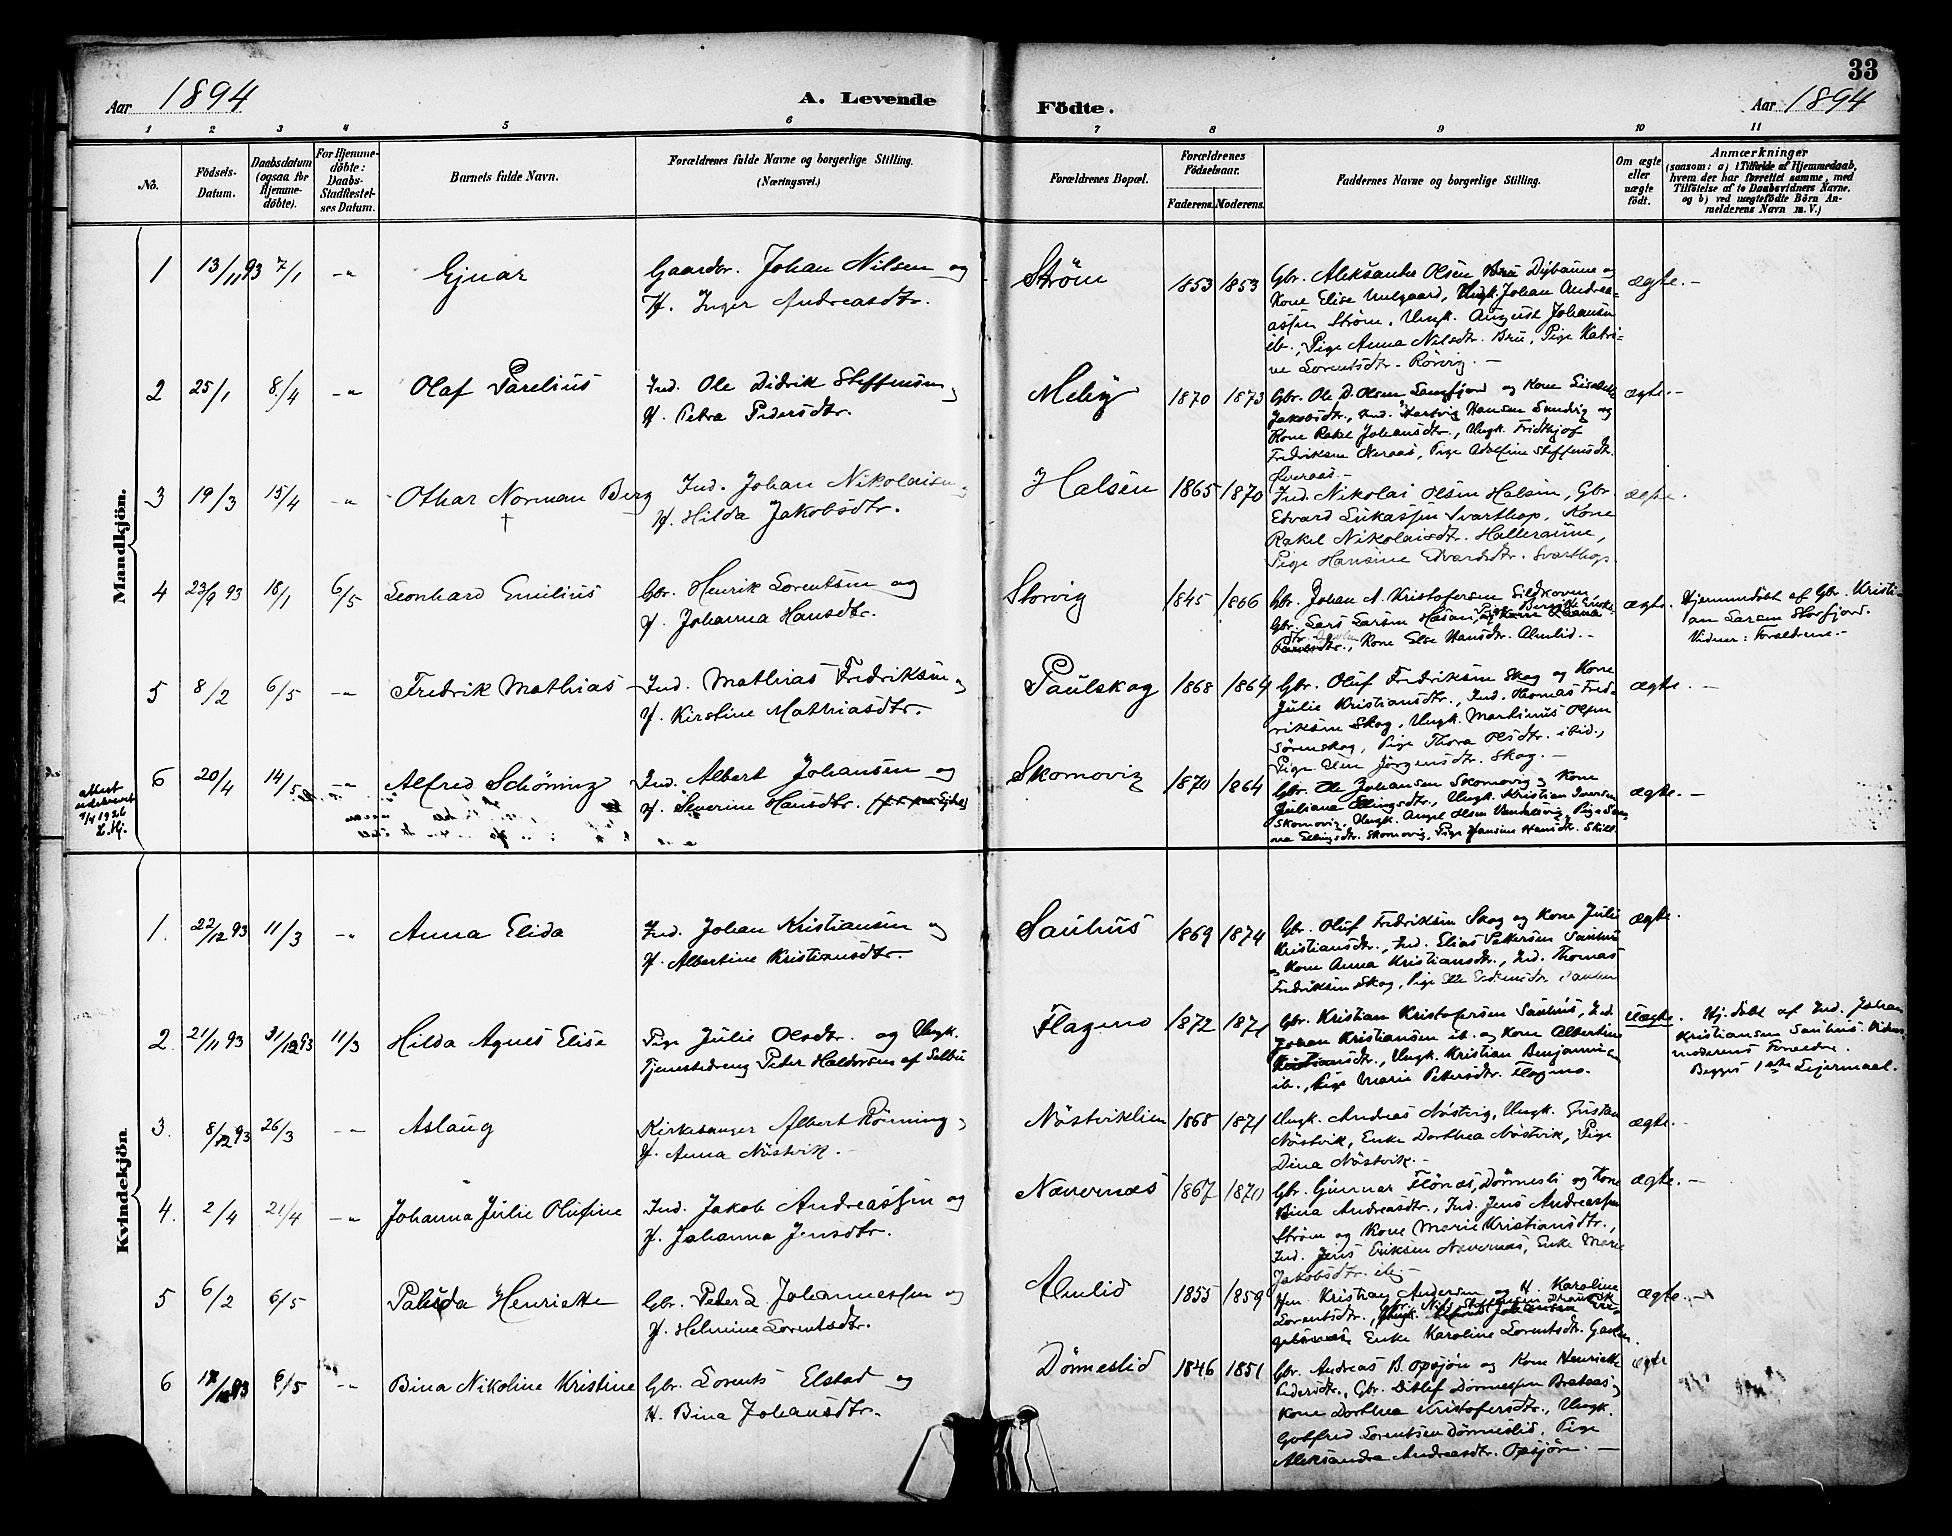 33
Aar 1894
A. Levende Födte.
Aar 1894
1 2 3 4 5 6 7 8 9 10 11
No.
Födsels-
Datum.
Daabsdatum
(ogsaa for
Hjemme-
döbte).
For Hjemme-
döbte:
Daabs-
Stadfæstel-
ses Datum.
Barnets fulde Navn.
Forældrenes fulde Navne og borgerlige Stilling.
(Næringsvei.)
Forældrenes Bopæl.
Forældrenes
Födselsaar.
Faderens. Moderens.
Faddernes Navne og borgerlige Stilling.
Om ægte
eller
uægte
födt.
Anmærkninger
(saasom: a) i Tilfælde af Hjemmedaab,
hvem der har forrettet samme, med
Tilföielse af to Daabsvidners Navne,
og b) ved uægtefödte Börn An-
melderens Navn m. V.)
Mandkjön.
1 13/11 93 7/1 -"- Ejnar
Gaardbr. Johan Nilsen og
H. Inger Andreasdtr.
Strøm 1853 1853
Gbr. Aleksander Olsen Dybaune og
Kone Elise Melgaard, Ungk. Johan Andrea-
assen Strøm, Ungk. August Johansen
ib., Pige Anna Nilsdtr. Bru, Pige Katri-
ne Lorentsdtr. Rørvig. -
ægte. -
2 25/1 8/4 -"- Olaf Parelius
Ind. Ole Didrik Steffensen og
H. Petra Pedersdtr.
Meby 1870 1873
Gbr. Ole D. Olsen og Kone Lisabeth
Jakobsdtr., Ind. Hartvig Hansen Sundvig og
Kone Rakel Johansdtr., Ungk. Fridthjof
Fredriksen Neraas, Pige Adolfine Steffensdtr.
Øveraas -
ægte. -
3 19/3 15/4 -"- Othar Norman Berg
†
Ind. Johan Nikolaisen og
H. Hilda Jakobsdtr.
Halsen 1865 1870
Ind. Nikolai Olsen Halsen, Gbr.
Edvard Lukassen Svarthop, Kone
Rakel Nikolaisdtr. Halleraune,
Pige Hansine Edvardsdtr. Svarthop.
ægte.
4 23/9 93 18/1 6/5 Leonhard Emilius
Gbr. Henrik Lorentsen og
H. Johanna Hansdtr.
Storvig 1845 1866
Gbr. Johan A. Kristofersen Sildkoven
Gbr. Lars Larsen Hasan,
Kone Else Hansdtr. Almlid. -
ægte.
Hjemmedøbt af Gbr. Kristi-
an Larsen Storfjord.
Vidner: Forældrene. -
5 8/2 6/5 -"- Fredrik Mathias
Ind. Mathias Fredriksen og
H. Kirstine Mathiasdtr.
Paulskag 1868 1864
Gbr. Oluf Fredriksen Skag og Kone
Julie Kristiansdtr., Ind. Thomas Fred-
riksen Skag, Ungk. Martinus Olsen
Sörenskag, Pige Thora Olsdtr. ibid.,
Pige Elen Jørgensdtr. Skag. -
ægte. -
attest
udskrevet
1926
6 20/4 14/5 -"- Alfred Schöning
Ind. Albert Johansen og
H. Severine Hansdtr.
Skomovig 1870 1864
Gbr. Ole Johansen Skomovig og Kone
Juliana Ellingsdtr., Ungk. Kristian Iversen
Skomovig, Ungk. Angel Olsen Vandalsvig, Pige San-
na Ellingsdtr. Skomovig, Pige Hansine Hansdtr.
ægte. -
Kvindekjön.
1. 22/12 93 11/3 -"- Anna Elida
Ind. Johan Kristiansen og
H. Albertine Kristiansdtr.
Sauhus 1869 1874
Gbr. Oluf Fredriksen Skag og Kone Julie
Kristiansdtr., Ind. Elias Pettersen Sauhus
og Kone Anna Kristiansdtr., Ind. Thomas
Fredriksen Skag, Pige
ægte.
2. 21/11 93 31/12 93 11/3 Hilda Agnes Elise
Pige Julie Olsdtr. og Ungk.
Tjenestedreng Peder Haldorsen af Selbu
Flageno 1872 1871
Gbr. Kristian Kristofersen Sauhus, Ind.
Johan Kristiansen ib. og Kone Albertine
Kristiansdtr., Ungk. Kristian Benjaminsen
ib., Pige Marie Petersdtr. Flageno.
uægte.
Hj. døbt af Ind. Johan
Kristiansen Sauhus. Vidner:
moderens Forældre.
Begges 1ste Lejermaal.
3. 8/12 93 26/3 -"- Aslaug
Kirkesanger Albert Rönning og
H. Anna Nöstvik. -
Nöstviklien 1868 1871
Ungk. Andreas Nöstvig, Ungk. Gustav
Nöstvik, Enke Dorthea Nöstvik, Pige
Dina Nöstvik. -
ægte. -
4. 2/4 21/4 -"- Johanna Julie Olufine
Ind. Jakob Andreassen og
H. Johanna Jensdtr.
Nævernæs 1867 1870
Gbr. Gunnar Flönæs, Dönnesli og Kone
Bina Andreasdtr., Ind. Jens Andreassen
Strøm og Kone Marie Kristiansdtr.,
Ind. Jens Eriksen Nævernæs, Enke Marie
Jakobsdtr. ib. -
ægte. -
5 6/2 6/5 Palida Henriette
Gbr. Peter L. Johannessen og
H. Helmine Lorentsdtr.
Almlid 1855 1859
Kristian Andersen og H. Karoline
Lorentsdtr.,
Enke Karoline Lorentsdtr.
ægte. -
6 /12 93 6/5 -"- Bina Nikoline Kristine
Gbr. Lorents Elstad og
H. Bina Johansdtr.
Dönneslid 1846 1851
Gbr. Andreas B. Opsjön og Kone Henriette
Pedersdtr., Gbr. Ditlef Dönnessen Brataas og
Kone Dorthea Kristofersdtr., Ungk.
Gotfred Lorentsen Dönneslid, Pige
Aleksandra Andreasdtr. Opsjön. -
ægte